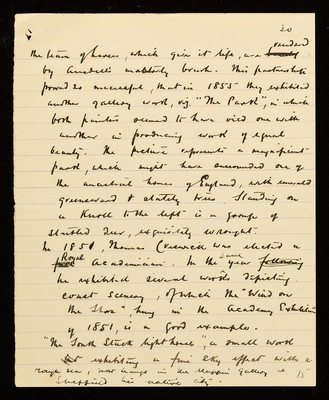 20
rendered
the team of horses, which give it life, are
by Ansdell's masterly brush. This partnership
proved so successful, that in 1855 they exhibited
another gallery work, viz. "The Park", in which
both painters seemed to have vied one with
another in producing work of equal
beauty. The picture represents a magnificent
park, which might have surrounded one of
the ancestral homes of England, with emerald
greensward & stately trees. Standing on
a knoll to the left is a group of
startled deer, exquisitely wrought.
In 1850, Thomas Creswick was elected a
Royal
Academician. In the same year
he exhibited several works depicting
coast scenery, of which the "Wind on
the Shore", hung in the Academy Exhibition
of 1851, is a good example.
"The South Stack lighthouse", a small work
exhibiting a fine sky effect with a
rough sea, now hangs in the Mappin Gallery
Sheffield his native city.